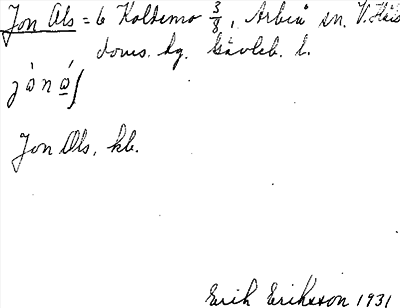 Jon Ols = 6 Koldemo 3/8, Arbrå sn. V. Häls
doms. hg. Gävleb. l.
Jon Ols, kb.
Erik Eriksson 1931